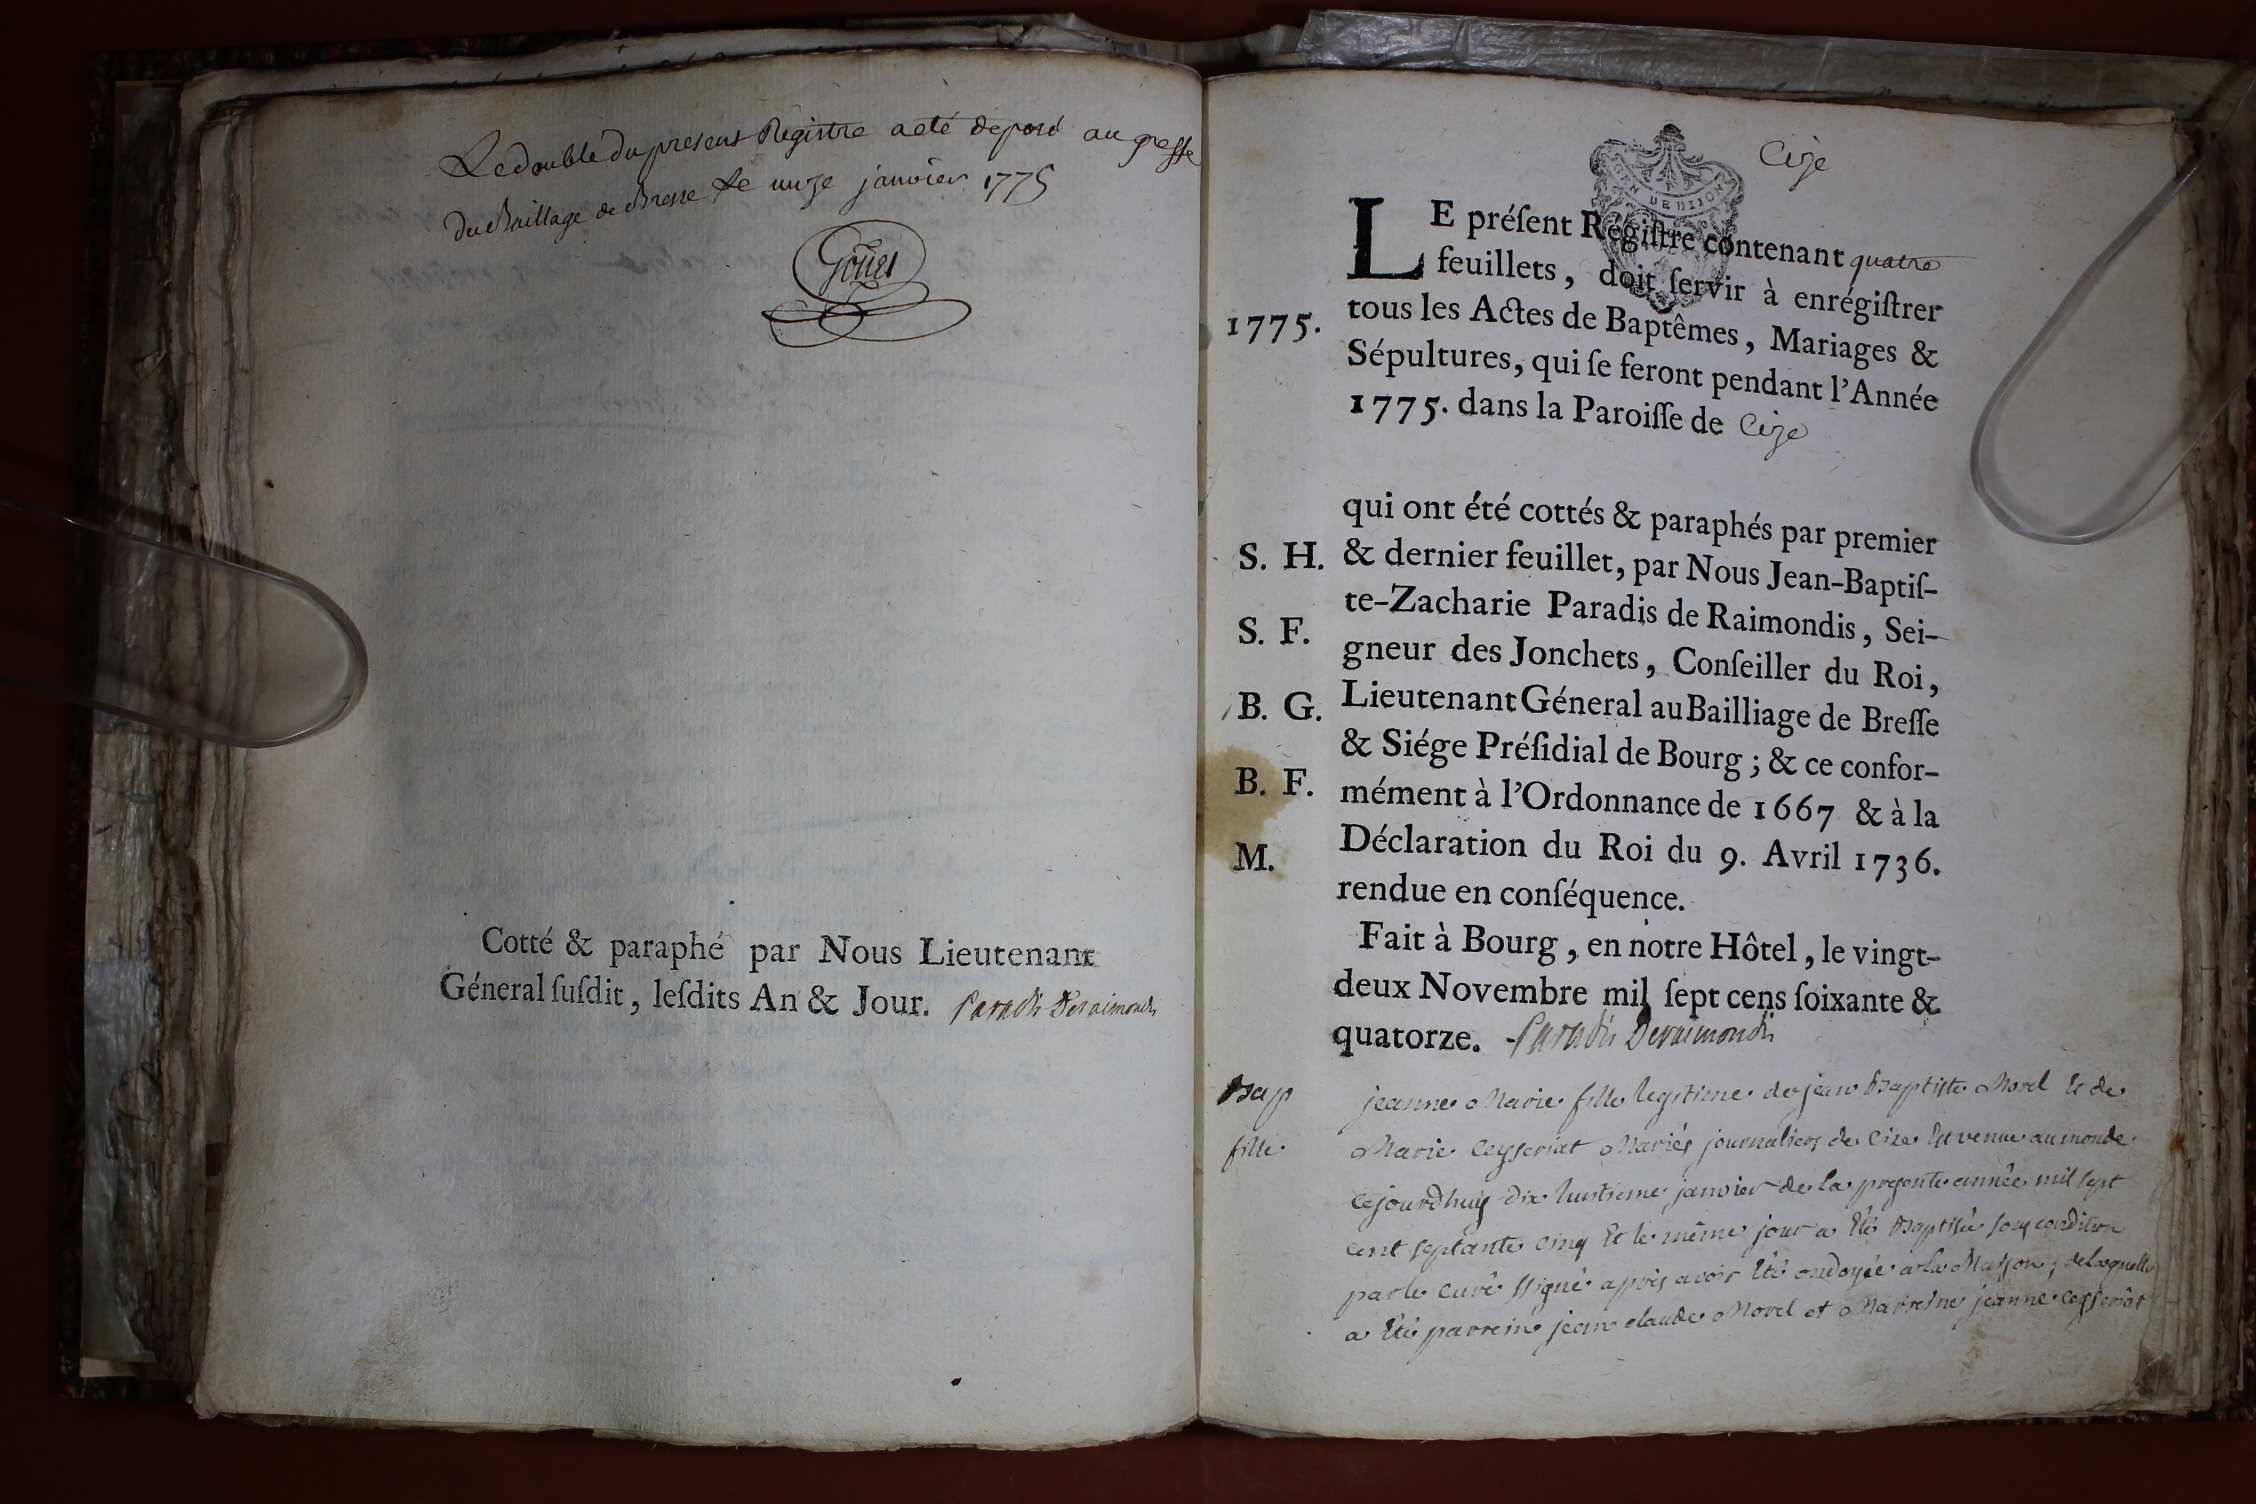 Le double du present Registre a eté deposé au greffe
du Baillage de Bresse le unze janvier 1775
Cotté & paraphé par Nous Lieutenant
Géneral ſuſdit, leſdits An & Jour. Paradis Deraimondis
Cize
GEN DE DIJON
LE préſent Régiſtre contenant quatre
feuillets, doit ſervir à enrégiſtrer
tous les Actes de Baptêmes, Mariages &
1775.
Sépultures, qui ſe feront pendant l'Année
1775. dans la Paroiſſe de Cize
qui ont été cottés & paraphés par premier
S. H. & dernier feuillet, par Nous Jean-Baptiſ-
te-Zacharie Paradis de Raimondis, Sei-
S. F. gneur des Jonchets, Conſeiller du Roi,
B. G. Lieutenant Géneral au Bailliage de Breſſe
& Siége Préſidial de Bourg ; & ce confor-
B. F. mément à l'Ordonnance de 1667 & à la
M. Déclaration du Roi du 9. Avril 1736.
rendue en conſéquence.
Fait à Bourg, en notre Hôtel, le vingt-
deux Novembre mil ſept cens ſoixante &
quatorze. Paradis Deraimondis
Bap
fille
jeanne Marie fille legitime de jean Baptiste Morel Et de
Marie Ceyseriat Mariés journaliers de Cize Est venue au monde
cejourdhuy dix huitieme janvier de la presente année mil sept
cent septante cinq Et le même jour a Eté Baptisée sous condition
par le curé ssigné après avoir Eté ondoyée a la Maison ; de laquelle
a Eté parrein jean claude Morel et Marreine jeanne ceyseriat